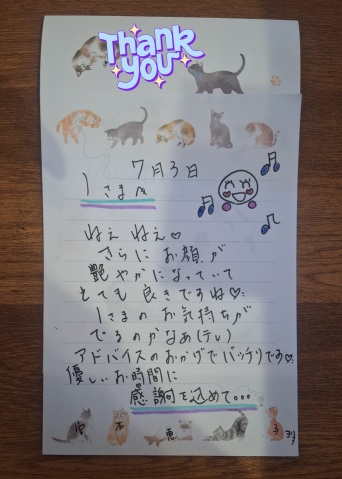 Thank
you
7月3日
Iさまへ
ねぇ ねぇ♡
さらに お顔が
艶やかになっていて
とても 良きですね♡
Iさまの お気持ちが
でるのかなぁ(テレ)
アドバイスのおかげでバッチリです♡
優しいお時間に
感謝を込めて…
恵
より